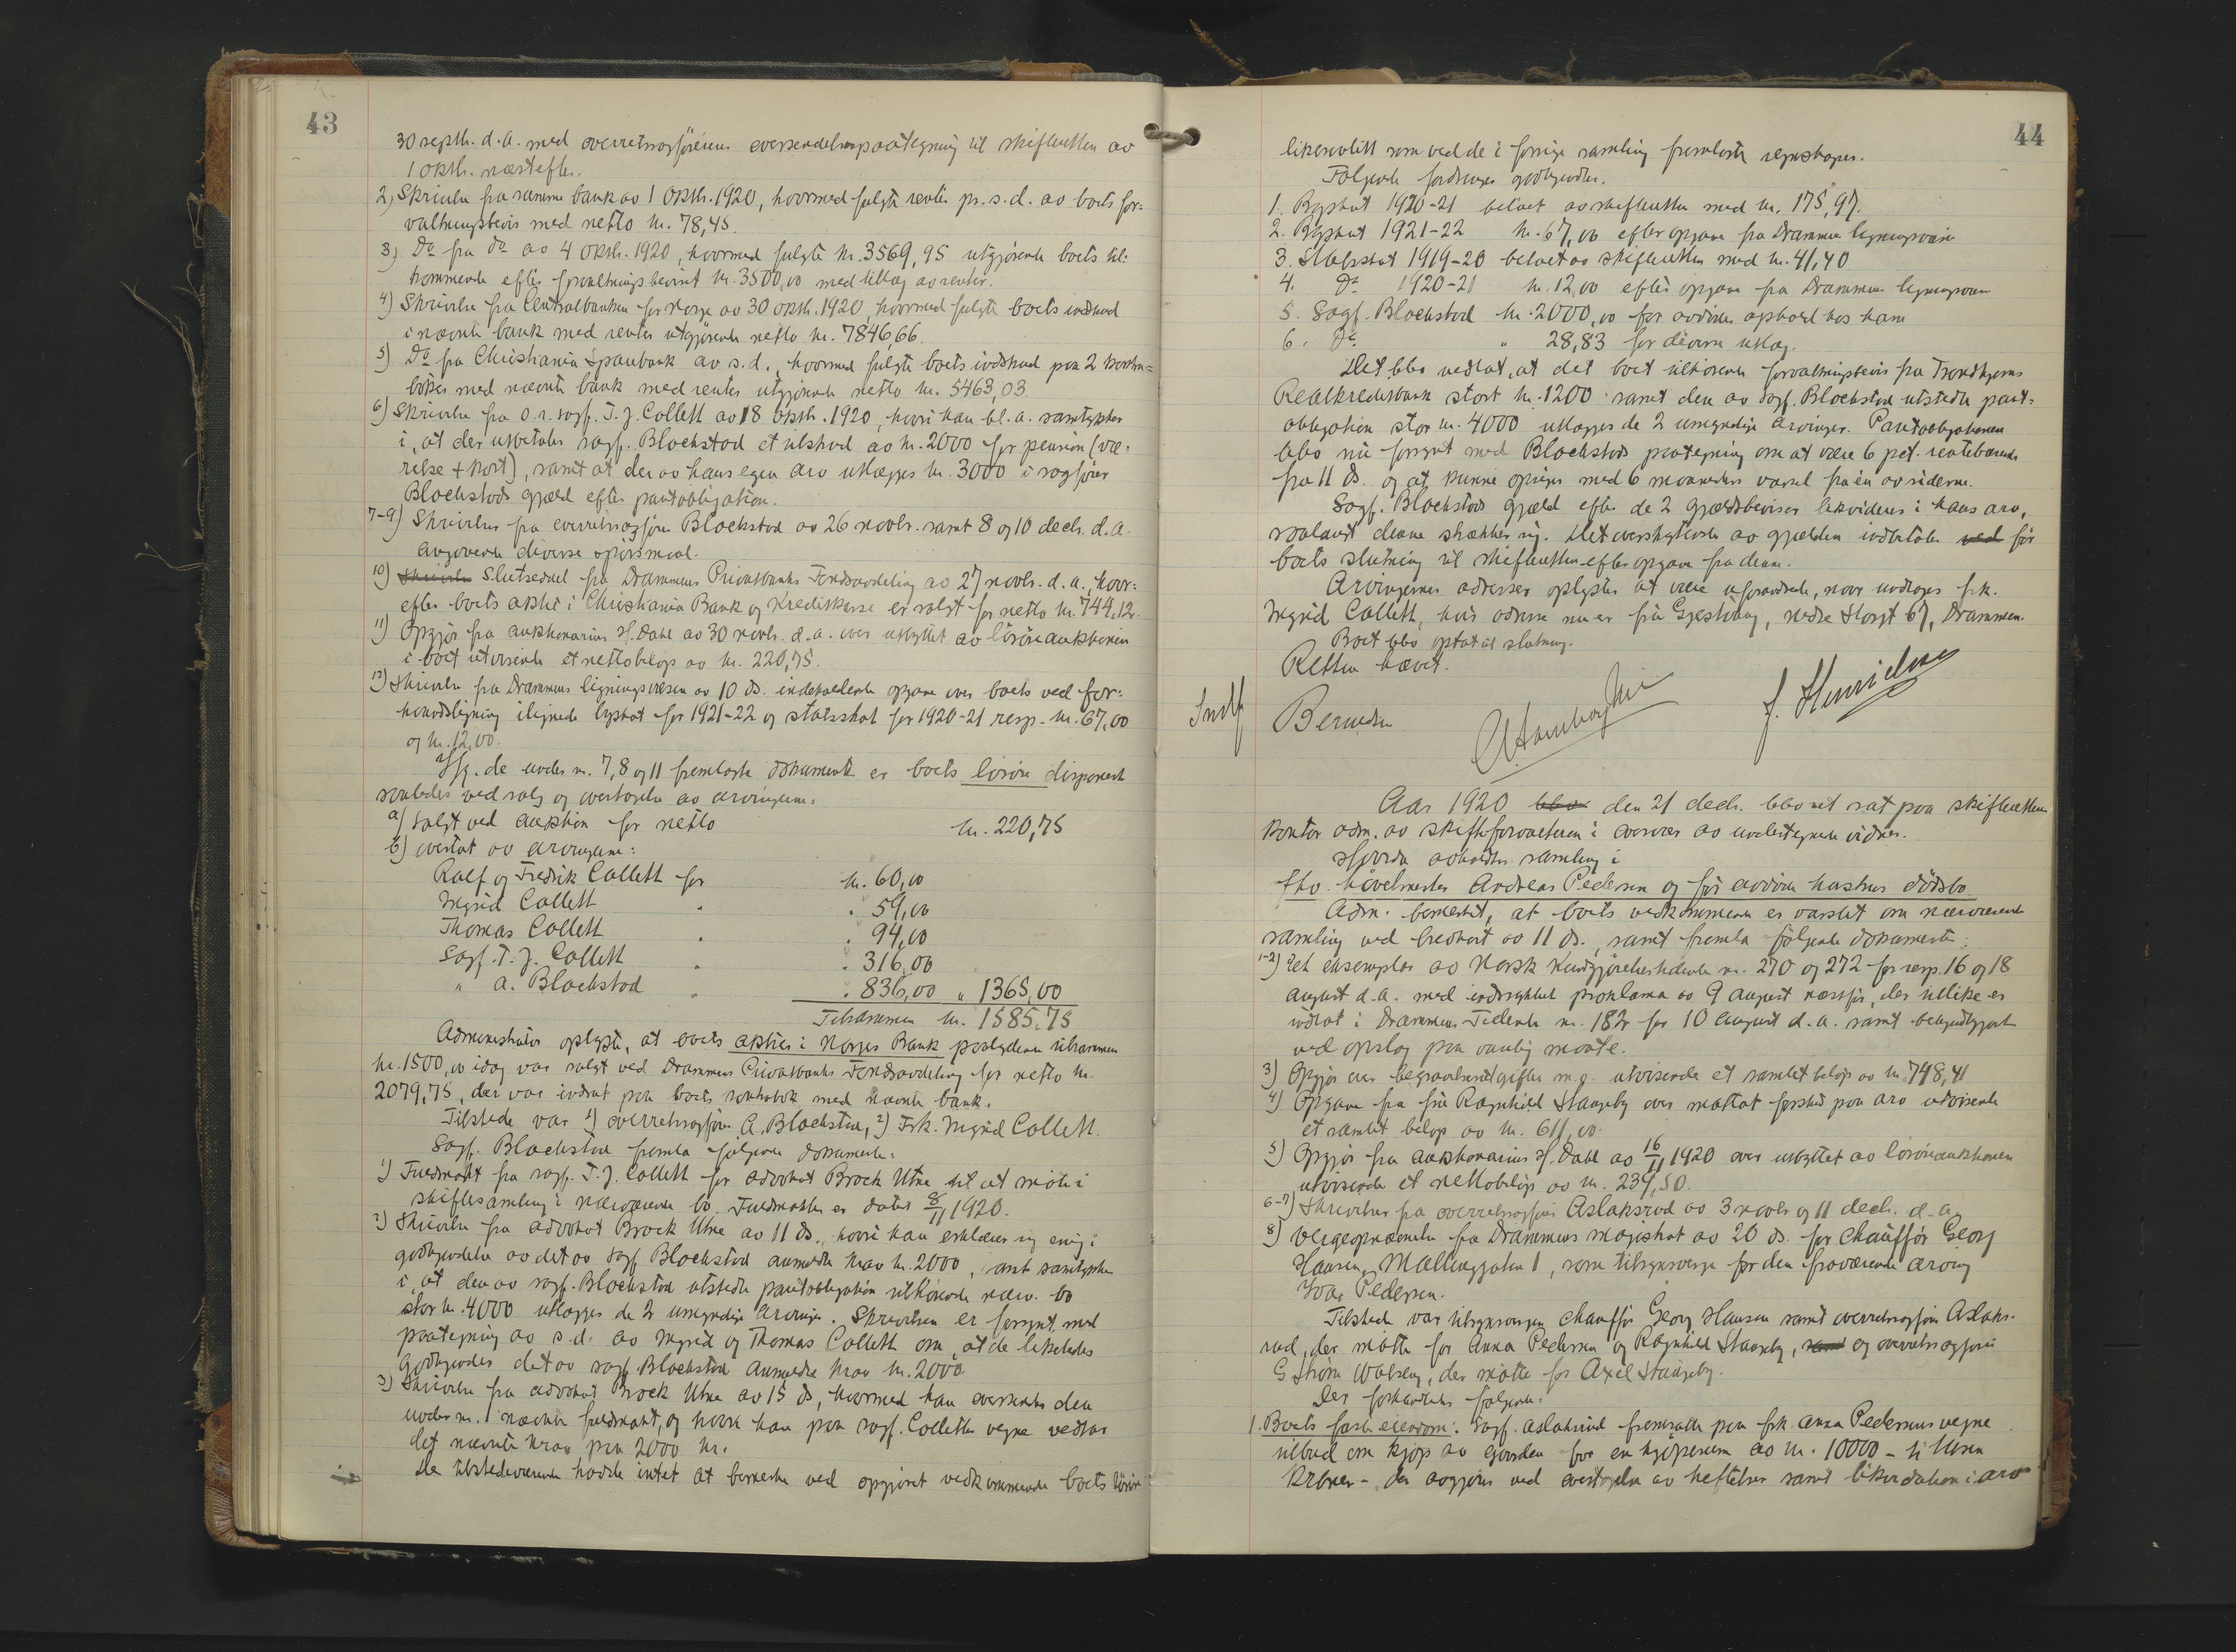 43
30 septb. d.a. med overretssagførerens oversendelsespaategning til skifteretten av
1 oktb. næstefter.
2) Skrivelse fra samme bank av 1 oktb. 1920, hvormed fulgte renter pr. s.d. av boets for-
valtningsbevis med netto kr. 78,45.
3) Do fra do av 4 oktb. 1920, hvormed fulgte kr. 3569,95 utgjørende boets til-
kommende efter forvaltningsbeviset kr. 3500,00 med tillæg av renter.
4) Skrivelse fra Centralbanken for Norge av 30 oktb. 1920 hvormed fulgte boets indskud
i nævnte bank med renter utgjørende netto kr. 7846,66.
5) Do fra Christiania Sparebank av s.d., hvormed fulgte boets indskud paa 2 kontra-
bøker med nævnte bank med renter utgjørende netto kr. 5463,03.
6) Skrivelse fra o.r. sagf. T. J. Collett av 18 oktb. 1920, hvori han bl.a. samtykker
i, at der utbetales sagf. Blockstad et tilskud av kr. 2000 for pension (væ-
relse + kost), samt at der av hans egen arv utlægges kr. 3000 i sagfører
Blockstads gjæld efter pantobligation.
7-9) Skrivelser fra overretssagfører Blockstad av 26 novb. samt 8 og 10 decb. d.a.
angaaende diverse spørsmaal.
10) Skrivelse Slutseddel fra Drammens Privatbanks Fondsavdeling av 27 novb. d.a., hvor-
efter boets aktie i Christiania Bank og Kreditkasse er solgt for netto kr. 744,12.
11) Opgjør fra auktionarius H. Dahl av 30 novb. d.a. over utbyttet av løsøreauktionen
i boet utvisende et nettobeløp av kr. 220,75.
12) Skrivelse fra Drammens ligningsvæsen av 10 ds. indeholdende opgave over boets ved for-
haandsligning ilignede byskat for 1921-22 og statsskat for 1920-21 resp. kr. 67,00
og kr. 12,00.
Ifg. de under nr. 7, 8 og 11 fremlagte dokumenter er boets løsøre disponert
saaledes ved salg og overtagelse av arvingerne:
a) solgt ved auktion for netto kr. 220,75
b) overtat av arvingerne:
Ralf og Fredrik Collett for kr. 60,00
Ingrid Collett " " 59,00
Thomas Collett " " 94,00
Sagf. T. J. Collett " " 316,00
" A. Blockstad " " 836,00 " 1365,00
Tilsammen kr. 1585,75
Administrator oplyste, at boets aktier i Norges Bank paalydende tilsammen
kr. 1500,00 idag var solgt ved Drammens Privatbanks Fondsavdeling for netto kr.
2079,75, der var indsat paa boets kontrabok med nævnte bank.
Tilstede var 1) overretssagfører A. Blockstad, 2) Frk. Ingrid Collett.
Sagf. Blockstad fremla følgende dokumenter:
1) Fuldmakt fra sagf. T. J. Collett for advokat Brock Utne til at møte i
skiftesamling i nærværende bo. Fuldmakten er datert 8/11 1920.
2) Skrivelse fra advokat Brock Utne av 11 ds., hvori han erklærer sig enig i
godkjendelse av det av sagf. Blockstad anmeldte krav kr. 2000, samt samtykker
i, at den av sagf. Blockstad utstedte pantobligation tilhørende nærv. bo
stor kr. 4000 utlægges de 2 umyndige arvinger. Skrivelsen er forsynt med
paategning av s.d. av Ingrid og Thomas Collett om, at de likeledes
godkjender det av sagf. Blockstad anmeldte krav kr. 2000
3) Skrivelse fra advokat Brock Utne av 15 ds, hvormed han oversender den
under nr. 1 nævnte fuldmakt, og hvori han paa sagf. Colletts vegne vedtar
det nævnte krav paa 2000 kr.
De tilstedeværende hadde intet at bemerke ved opgjøret vedkommende boets løsøre
44
likesaalitt som ved de i forrige samling fremlagte regnskaper.
Følgende fordringer godkjendtes.
1. Byskat 1920-21 betalt av skifteretten med kr. 175,97.
2. Byskat 1921-22 kr. 67,00 efter opgave fra Drammens ligningsvæsen
3. Statsskat 1919-20 betalt av skifteretten med kr. 41,40
4. Do 1920-21 kr. 12,00 efter opgave fra Drammens ligningsvæsen
5. Sagf. Blockstad kr. 2000,00 for avdødes ophold hos ham
6. Do " 28,83 for diverse utlæg.
Det blev vedtat, at det boet tilhørende forvaltningsbevis fra Trondhjems
Realkreditbank stort kr. 1200 samt den av sagf. Blockstad utstedte pant-
obligation stor kr. 4000 utlægges de 2 umyndige arvinger. Pantobligationen
blev nu forsynt med Blockstads paategning om at være 6 pct. rentebærende
fra 11 ds. og at kunne opsiges med 6 maaneders varsel fra en av siderne.
Sagf. Blockstads gjæld efter de 2 gjældsbeviser likvideres i hans arv,
saalangt denne strækker sig. Det overskytende av gjælden indbetales ved før
boets slutning til skifteretten efter opgave fra denne.
Arvingernes adresser oplystes at være uforandrede, naar undtages frk.
Ingrid Collett, hvis adresse nu er fru Gjestvang, nedre Storgt 67, Drammen.
Boet blev optat til slutning.
Retten hævet.
Berntsen
J. Henriksen
Aar 1920 blev den 21 decb. blev ret sat paa skifterettens
kontor adm. av skifteforvalteren i overvær av undertegnede vidner.
Hvorda avholdtes samling i
fhv. høvelmester Andreas Pedersen og før avdøde hustrus dødsbo
Adm. bemerket, at boets vedkommende er varslet om nærværende
samling ved brevkort av 11 ds., samt fremla følgende dokumenter:
1-2) Et eksemplar av Norsk Kundgjørelsestidende nr. 270 og 272 for resp. 16 og 18
august d.a. med indrykket proklama av 9 august næstfør, der tillike er
indtat i Drammens Tidende nr. 182 for 10 august d.a. samt bekjendtgjort
ved opslag paa vanlig maate.
3) Opgjør over begravelsesutgifter m.g. utvisende et samlet beløp av kr. 748,41
4) Opgave fra fru Ragnhild Stangeby over mottat forskud paa arv utvisende
et samlet beløp av kr. 611,00.
5) Opgjør fra auktionarius H. Dahl av 16/11 1920 over utbyttet av løsøreauktionen
utvisende et nettobeløp av kr. 239,50.
6-7) Skrivelser fra overretssagfører Aslaksrud av 3 novb og 11 decb. d.a.
8) Vergeopnævnelse fra Drammens magistrat av 20 ds. for chauffør Georg
Hansen, Mallinggaten 1, som tilsynsverge for den fraværende arving
Ivar Pedersen.
Tilstede var tilsynsvergen chauffør Georg Hansen samt overretssagfører Aslaks-
rud, der møtte for Anna Pedersen og Ragnhild Stangeby, samt og overretssagfører
G Strøm Walseng, der møtte for Axel Stangeby.
Der forhandledes følgende:
1. Boets faste eiendom: Sagf. Aslaksrud fremsatte paa frk. Anna Pedersens vegne
tilbud om kjøp av gaarden for en kjøpesum av kr. 10000 - ti tusen
kroner - der avgjøres ved overtagelse av heftelser samt likvidation i arv